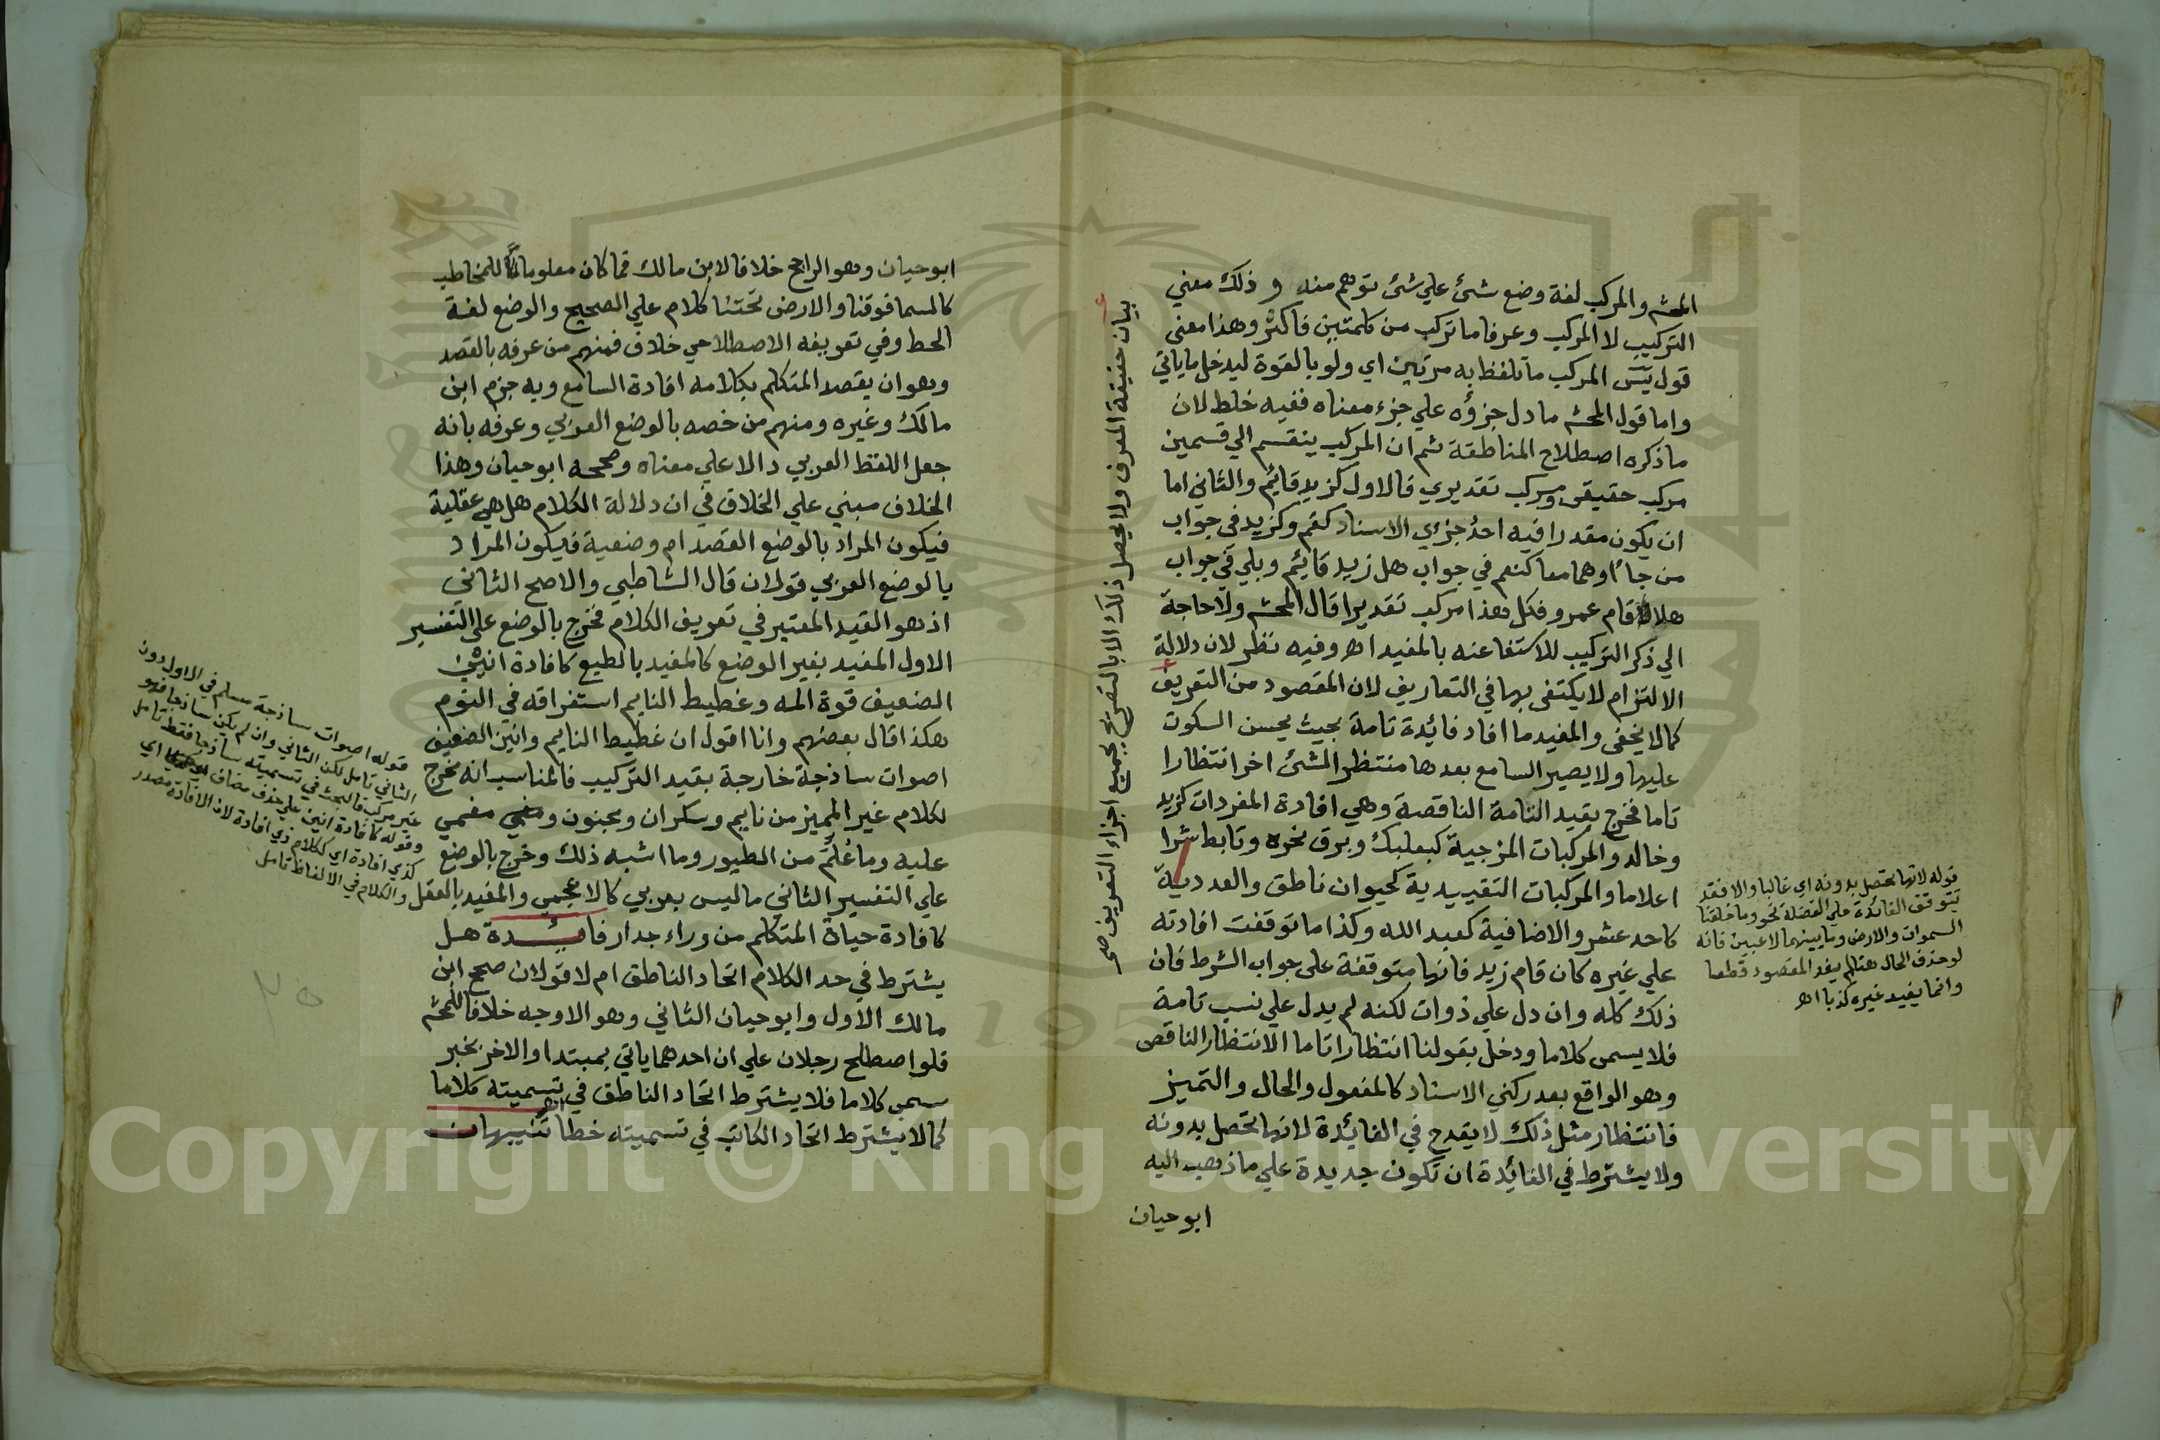 المحشم والمركب لغة وضع شئ علي شئ توهم منه و ذلك معني
التركيب لا المركب وعرفا ما تركب من كلمتين فاكثر وهذا معنى
قول يٓسٓ المركب ما تلفظ به مرتين اي ولو بالقوة ليدخل ما ياتي
واما قول المحشم ما دل جزؤه علي جزء معناه ففيه خلط لان
ما ذكره اصطلاح المناطقة ثم ان المركب ينقسم الي قسمين
مركب حقيقي ومركب تقديري فالاول كزيد قائم والثاني اما
ان يكون مقدرا فيه احد جزءي الاسناد كقم وكزيد في جواب
من جاء او هما معا كنعم في جواب هل زيد قايم وبلي في جواب
هلا قام عمرو فكل هذا مركب تقديرا قال المحشم ولا حاجة
الي ذكر التركيب للاستغنا عنه بالمفيد اه وفيه نظر لان دلالة
الالتزام لا يكتفى بها في التعاريف لان المقصود من التعريف
بيان حقيقة المعرف ولا يحصل ذلك الا بالتصريح بجميع اجزاء التعريف صح
كما لا يخفى والمفيد ما افاد فائدة تامة بحيث يحسن السكوت
عليها ولا يصير السامع بعدها منتظرا لشئ اخر انتظارا
تاما فخرج بقيد التامة الناقصة وهي افادة المفردات كزيد
وخالد والمركبات المزجية كبعلبك وبرق نحره وتابط شرا
اعلاما والمركبات التقييدية كحيوان ناطق والعددية
كاحد عشر والاضافية كعبد الله وكذا ما توقفت افادته
علي غيره كان قام زيد فانها متوقفة على جواب الشرط فان
ذلك كله وان دل علي ذوات لكنه لم يدل علي نسب تامة
فلا يسمى كلاما ودخل بقولنا انتظارا تاما الانتظار الناقص
وهو الواقع بعد ركني الاسناد كالمفعول والحال والتميز
فانتظار مثل ذلك لا يقدح في الفائدة لانها تحصل بدونه
ولا يشترط في الفائدة ان تكون جديدة علي ما ذهب اليه
ابو حيان
قوله لانها تحصل بدونه اي غالبا والا فقد
تتوقف الفائدة علي الفضلة نحو وما خلقنا
السموات والارض وما بينهما لاعبين فانه
لو حذف الحال هنا لم يفد المقصود قطعا
وانما يفيد غيره كذبا اه
ابو حيان وهو الراجح خلافا لابن مالك فما كان معلوما للمخاطب
كالسما فوقنا والارض تحتنا كلام علي الصحيح والوضع لغة
الحط وفي تعريفه الاصطلاحي خلاف فمنهم من عرفه بالقصد
وهو ان يقصد المتكلم بكلامه افادة السامع وبه جزم ابن
مالك وغيره ومنهم من خصه بالوضع العربي وعرفه بانه
جعل اللفظ العربي دالا علي معناه وصححه ابو حيان وهذا
الخلاف مبني علي الخلاف في ان دلالة الكلام هل هي عقلية
فيكون المراد بالوضع القصد ام وضعية فيكون المراد
بالوضع العربي قولان قال الشاطبي والاصح الثاني
اذ هو القيد المعتبر في تعريف الكلام فخرج بالوضع على التفسير
الاول المفيد بغير الوضع كالمفيد بالطبع كافادة انين
الضعيف قوة المه وغطيط النايم استغراقه في النوم
هكذا قال بعضهم وانا اقول ان غطيط النايم وانين الضعيف
اصوات ساذجة خارجة بقيد التركيب فالمناسب انه مخرج
لكلام غير المميز من نايم وسكران ومجنون ومغمي
عليه وما عُلّم من الطيور وما اشبه ذلك وخرج بالوضع
علي التفسير الثاني ما ليس بعربي كالاعجمي والمفيد بالعقل
كافادة حياة المتكلم من وراء جدار فايدة هل
يشترط في حد الكلام اتحاد الناطق ام لا قولان صحح ابن
مالك الاول وابو حيان الثاني وهو الاوجه خلافا للمحشم
فلو اصطلح رجلان علي ان احدهما ياتي بمبتدا والاخر بخبر
سمي كلاما فلا يشترط اتحاد الناطق في تسميته كلاما
كما لا يشترط اتحاد الكاتب في تسميته خطا اه تنبيهات
قوله اصوات ساذجة مسلم في الاول دون
الثاني تامل لكن الثاني وان لم يكن ساذجا فهو
غير مركب فالبحث في تسميته ساذجا فقط تامل
وقوله كافادة انين علي حذف مضاف اي
كذي افادة اي ككلام ذي افادة لان الافادة مصدر
والكلام في الالفاظ تامل
٢٥
Copyright © King Saud University
1957